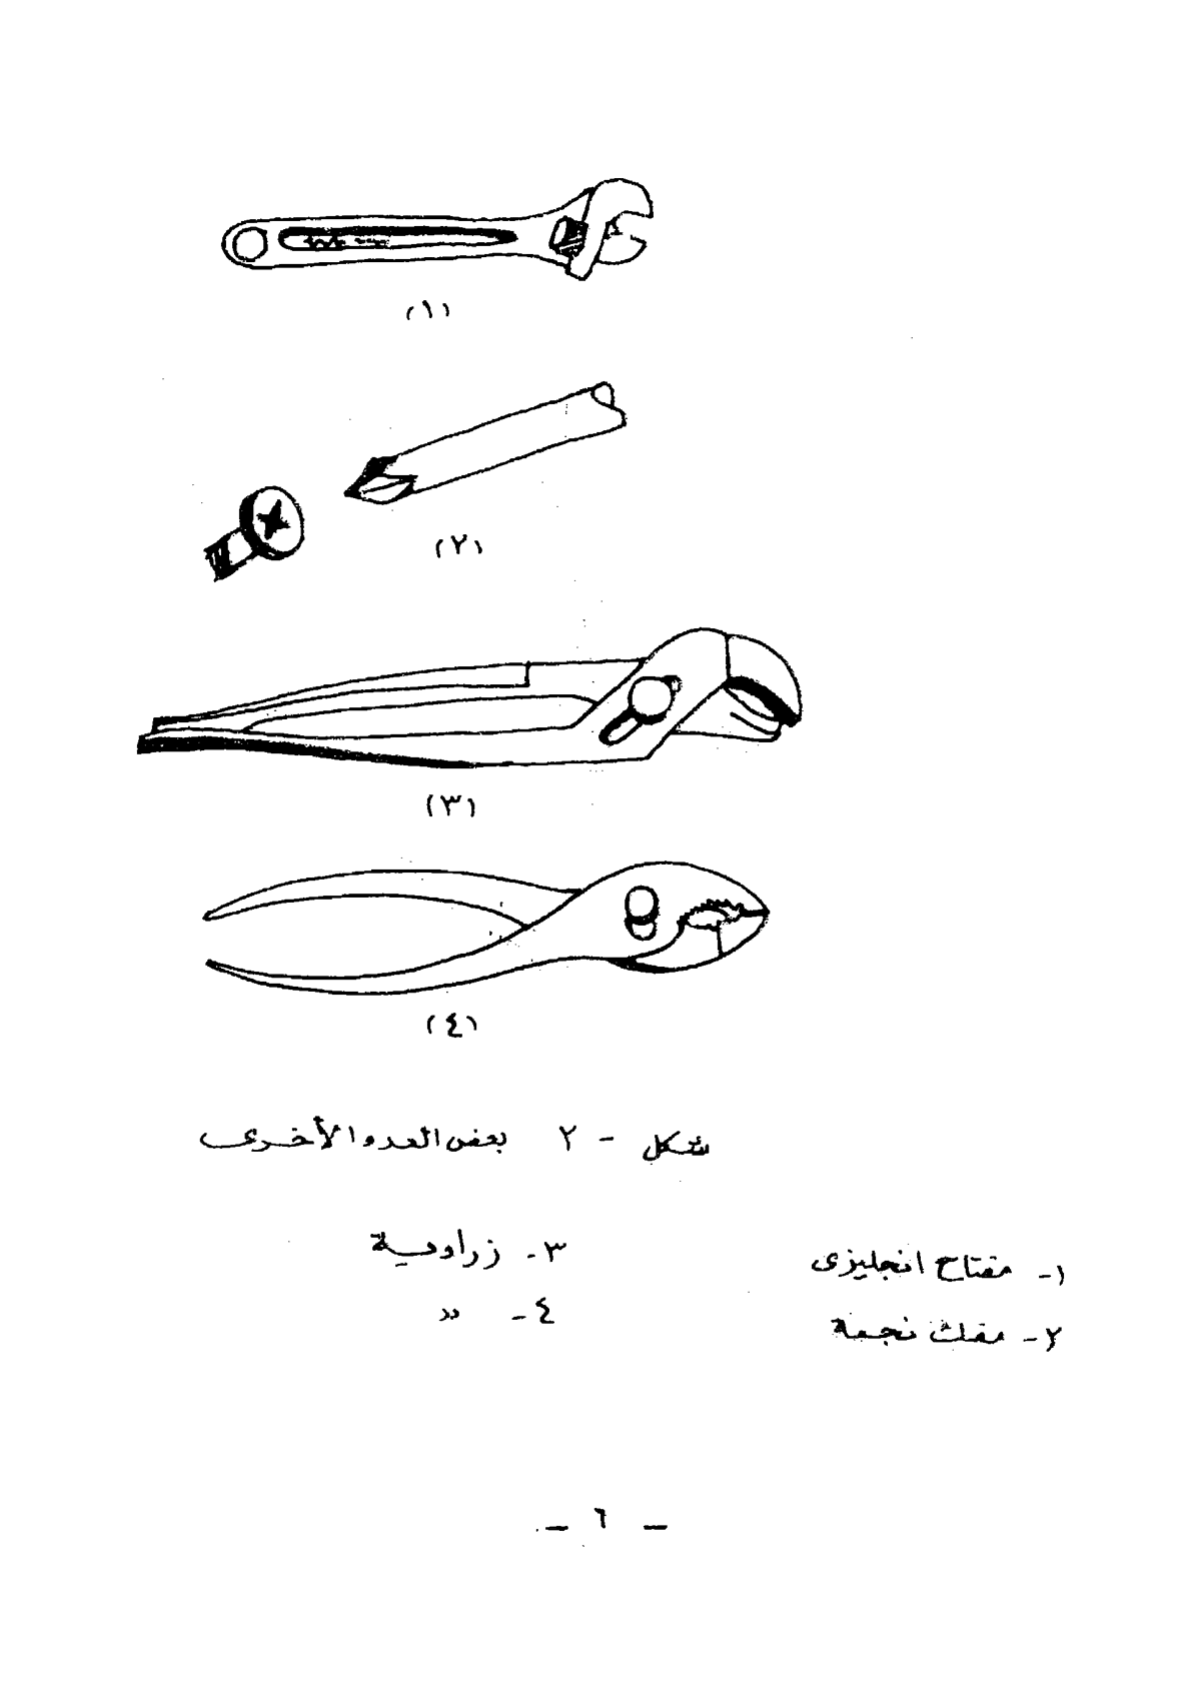 (١)
(٢)
(٣)
(٤)
شكل - ٢ بعض العدد الأخرى
١- مفتاح انجليزى
٢- مفك نجمة
٣- زرادية
٤- »
- ٦ -